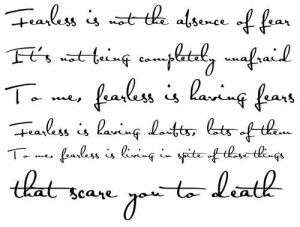 Fearless is not the absence of fear
It's not being completely unafraid
To me, fearless is having fears
Fearless is having doubts, lots of them
To me, fearless is living in spite of those things
that scare you to death